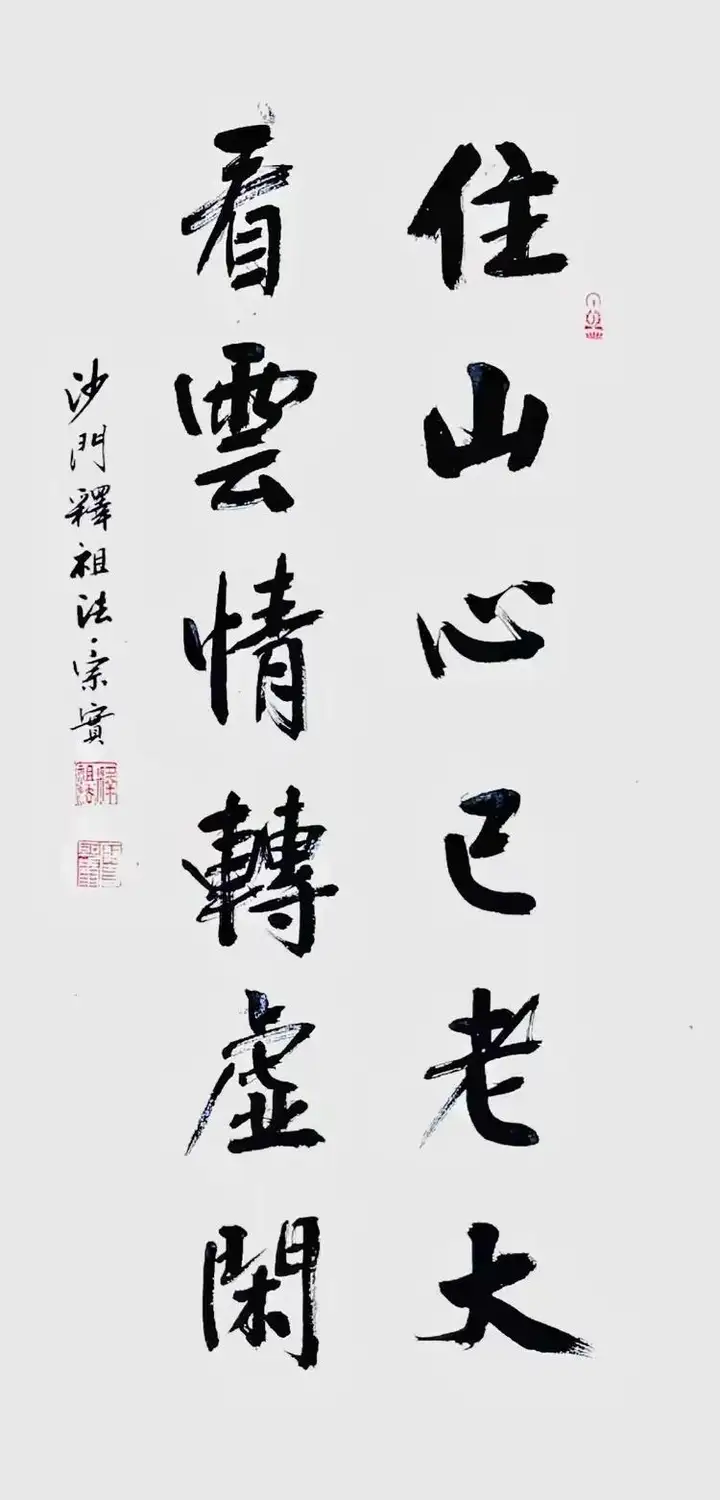 住山心已老大
看雲情轉虛閑
沙門釋祖法·宗實